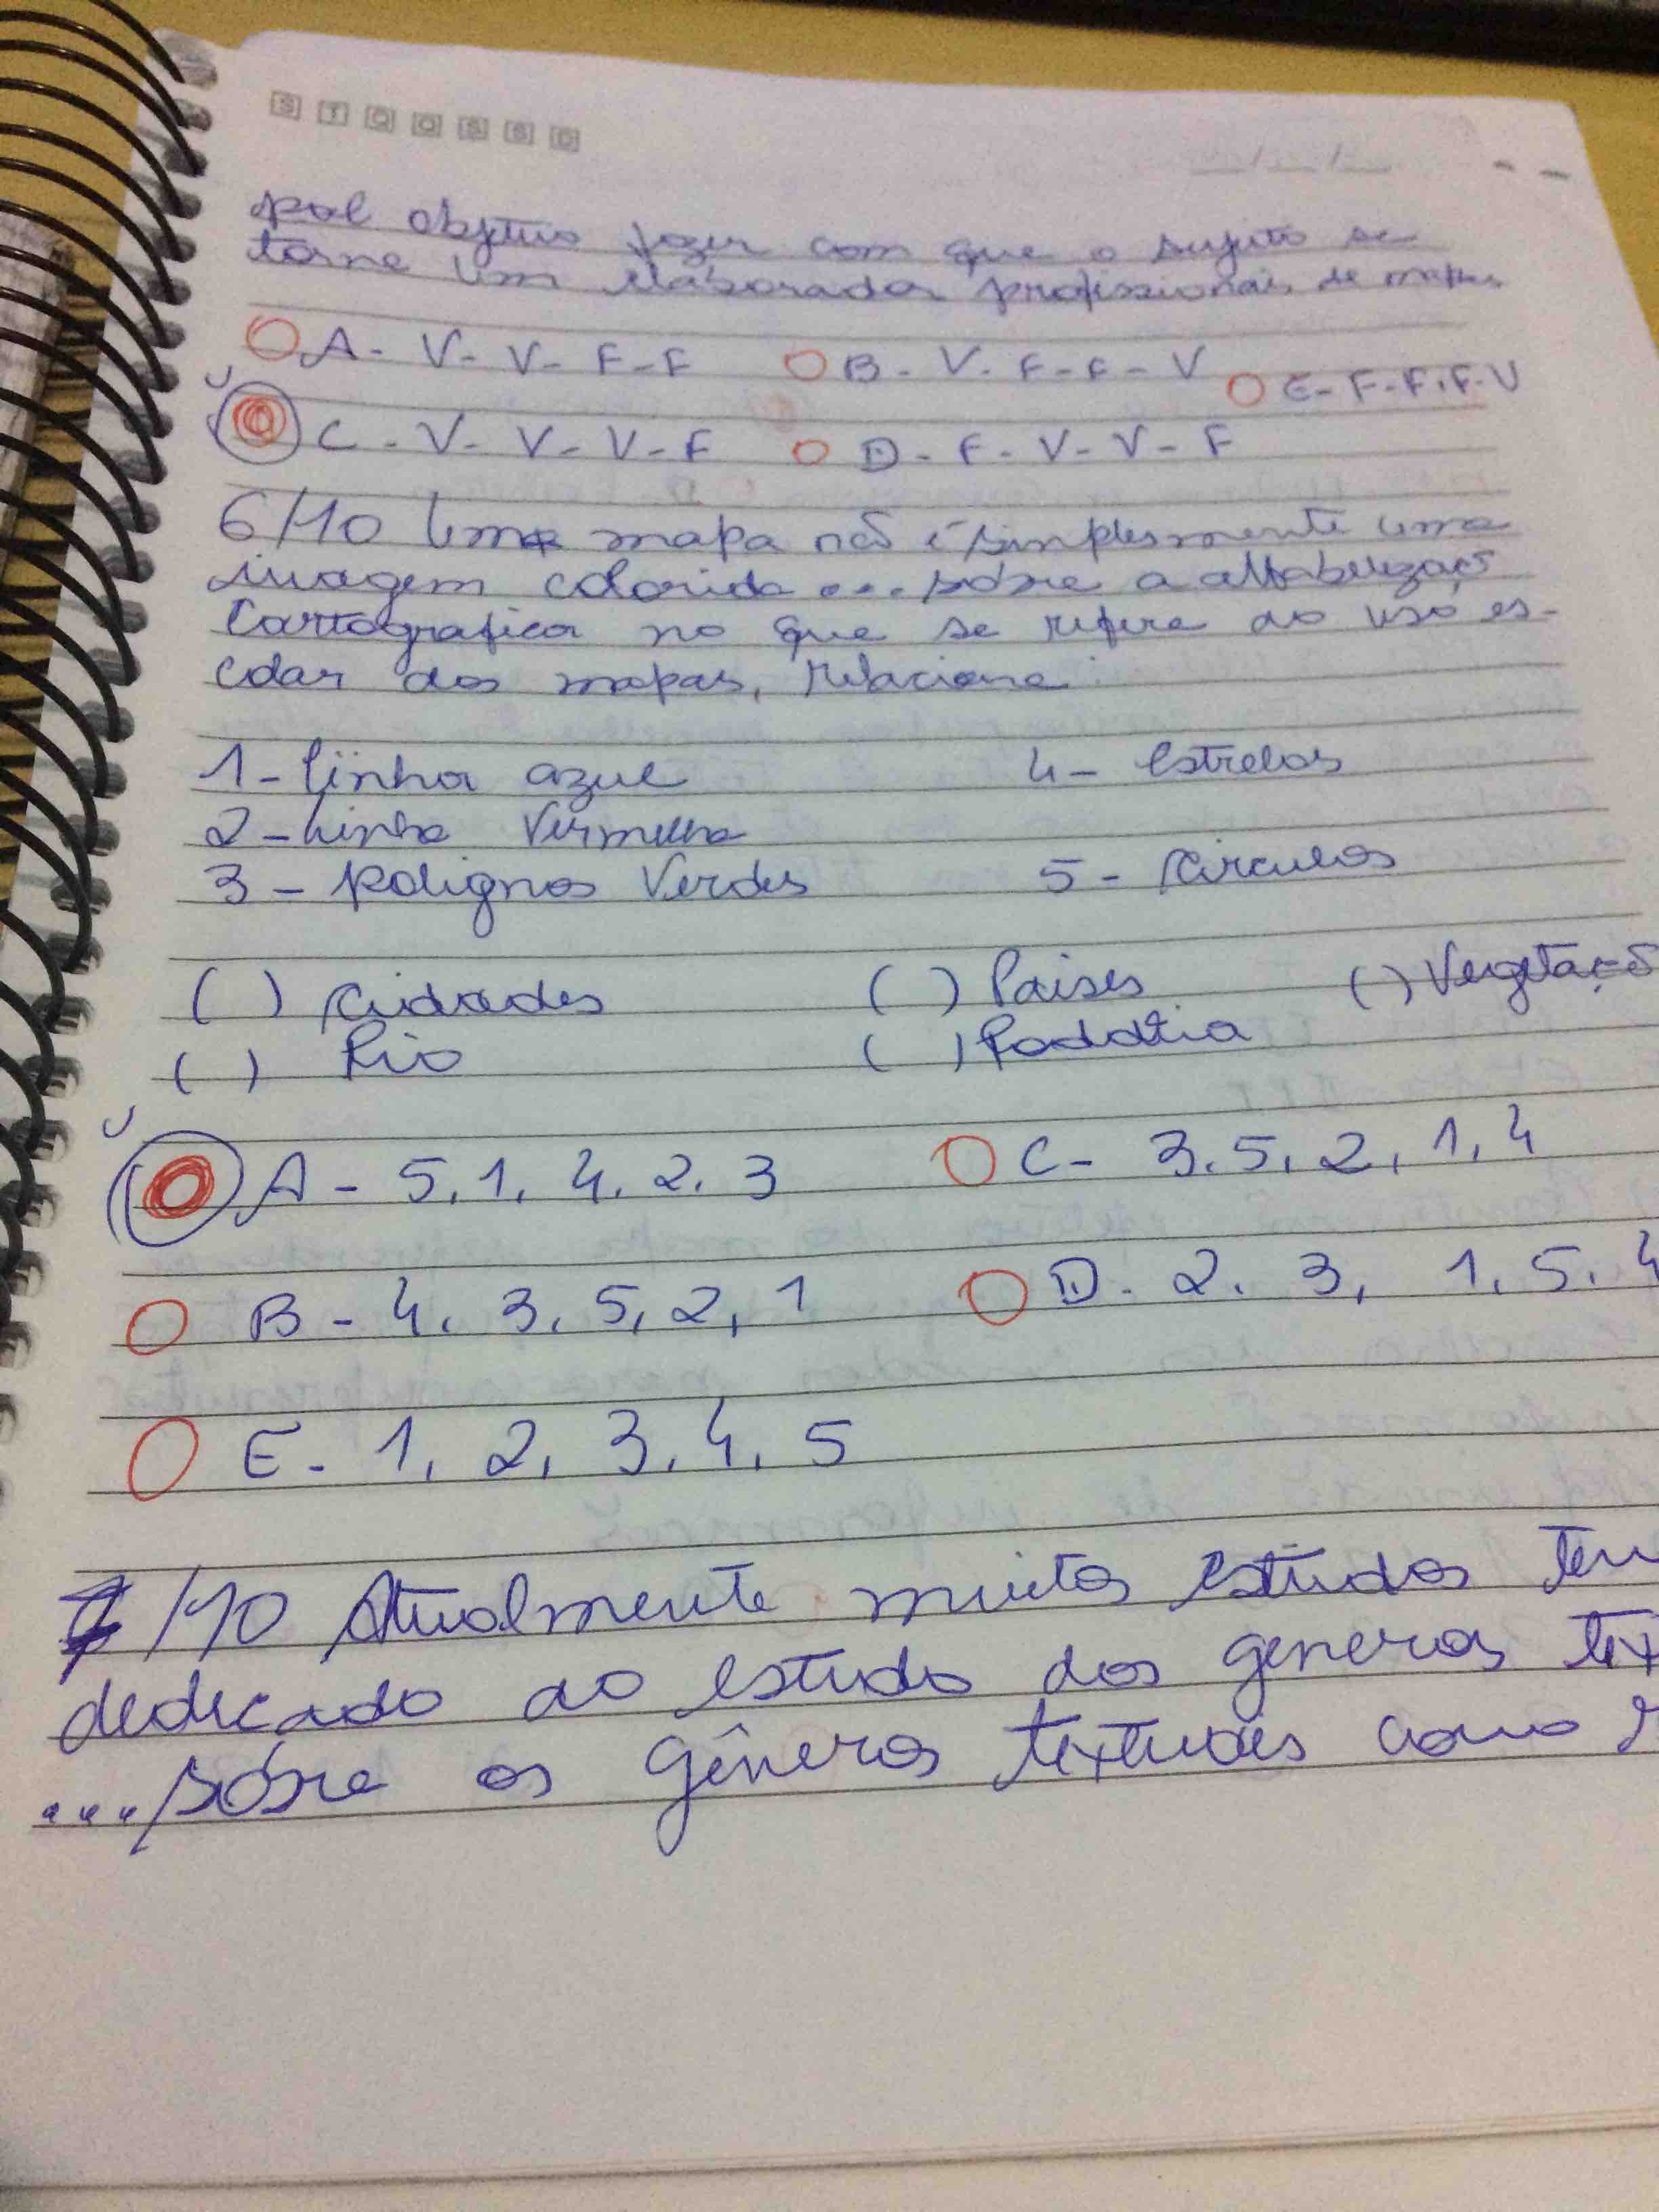 S T Q Q S S D
pol objetivo fazer com que o sujeito se
torne um elaborador profissionais de mapas
A - V - V - F - F
B - V - F - F - V
E - F - F - F - V
C - V - V - V - F
D - F - V - V - F
6/10 Um mapa não é simplesmente uma
imagem colorida .... sóbre a alfabelizaçõ
Cartografica no que se refere ao uso es-
colar dos mapas, relacione:
1 - linha azul
4 - estrelas
2 - linha Vermelha
3 - polignos Verdes
5 - Circulos
( ) Cidades
( ) Paises
( ) Vegetação
( ) Rio
( ) Roddvia
A - 5, 1, 4, 2, 3
C - 3, 5, 2, 1, 4
B - 4, 3, 5, 2, 1
D - 2, 3, 1, 5, 4
E - 1, 2, 3, 4, 5
7/10 Atualmente muitos estudos tem
dedicado ao estudo dos generos tex
... sóbre os gêneros textuais como